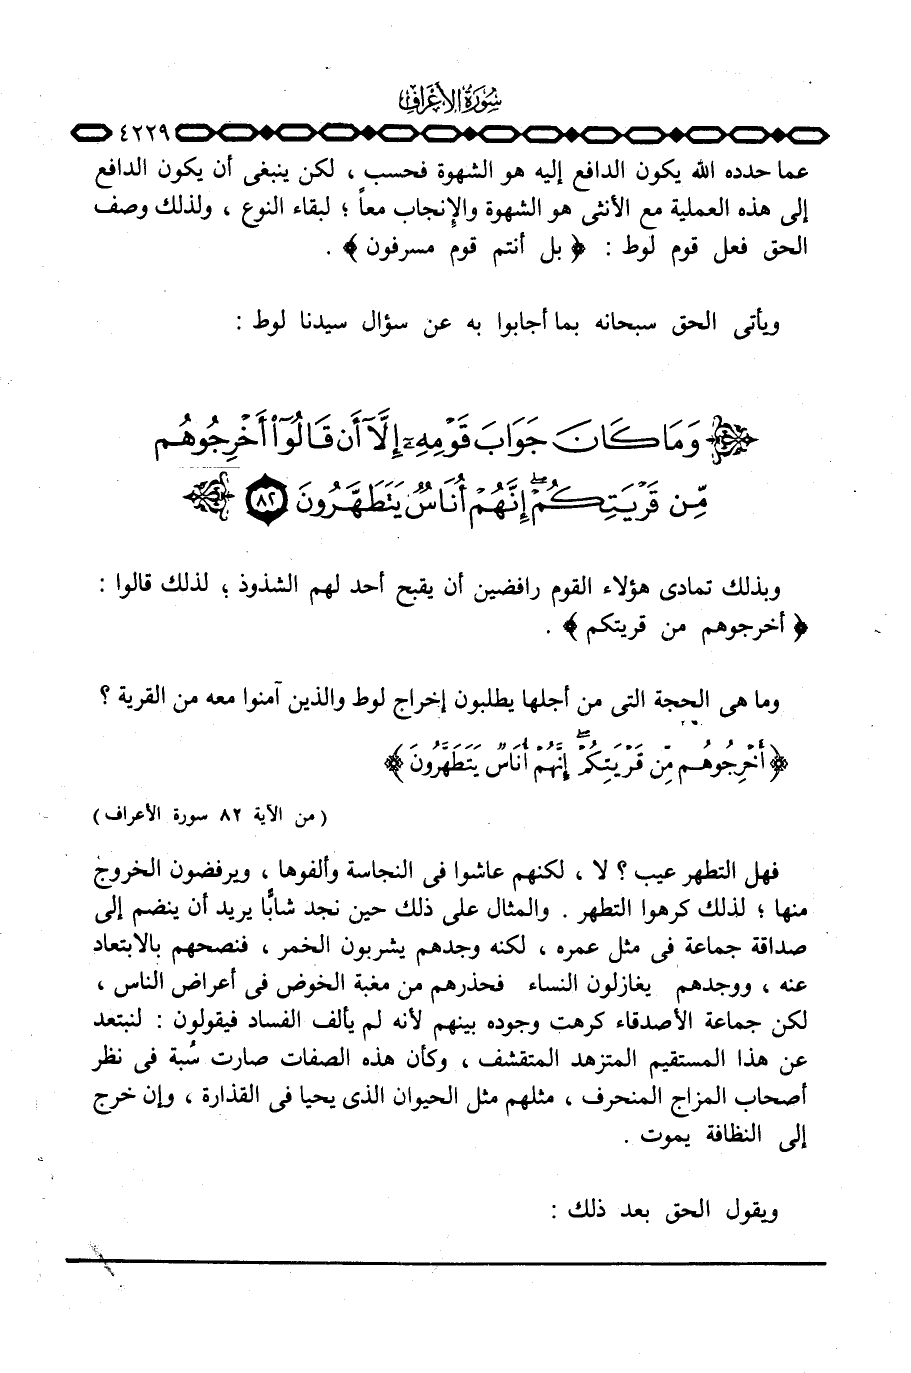 سورة الأعراف
٤٢٢٩
عما حدده الله يكون الدافع إليه هو الشهوة فحسب ، لكن ينبغى أن يكون الدافع
إلى هذه العملية مع الأنثى هو الشهوة والإنجاب معاً ؛ لبقاء النوع ، ولذلك وصف
الحق فعل قوم لوط : ﴿ بل أنتم قوم مسرفون ﴾ .
ويأتى الحق سبحانه بما أجابوا به عن سؤال سيدنا لوط :
وَمَا كَانَ جَوَابَ قَوْمِهِۦٓ إِلَّآ أَن قَالُوٓا۟ أَخْرِجُوهُم
مِّن قَرْيَتِكُمْ ۖ إِنَّهُمْ أُنَاسٌ يَتَطَهَّرُونَ ٨٢
وبذلك تمادى هؤلاء القوم رافضين أن يقبح أحد لهم الشذوذ ؛ لذلك قالوا :
﴿ أخرجوهم من قريتكم ﴾ .
وما هى الحجة التى من أجلها يطلبون إخراج لوط والذين آمنوا معه من القرية ؟
﴿ أَخْرِجُوهُم مِّن قَرْيَتِكُمْ ۖ إِنَّهُمْ أُنَاسٌ يَتَطَهَّرُونَ ﴾
( من الآية ٨٢ سورة الأعراف )
فهل التطهر عيب ؟ لا ، لكنهم عاشوا فى النجاسة وألفوها ، ويرفضون الخروج
منها ؛ لذلك كرهوا التطهر . والمثال على ذلك حين نجد شابًّا يريد أن ينضم إلى
صداقة جماعة فى مثل عمره ، لكنه وجدهم يشربون الخمر ، فنصحهم بالابتعاد
عنه ، ووجدهم يغازلون النساء فحذرهم من مغبة الخوض فى أعراض الناس ،
لكن جماعة الأصدقاء كرهت وجوده بينهم لأنه لم يألف الفساد فيقولون : لنبتعد
عن هذا المستقيم المتزهد المتقشف ، وكأن هذه الصفات صارت سُبة فى نظر
أصحاب المزاج المنحرف ، مثلهم مثل الحيوان الذى يحيا فى القذارة ، وإن خرج
إلى النظافة يموت .
ويقول الحق بعد ذلك :